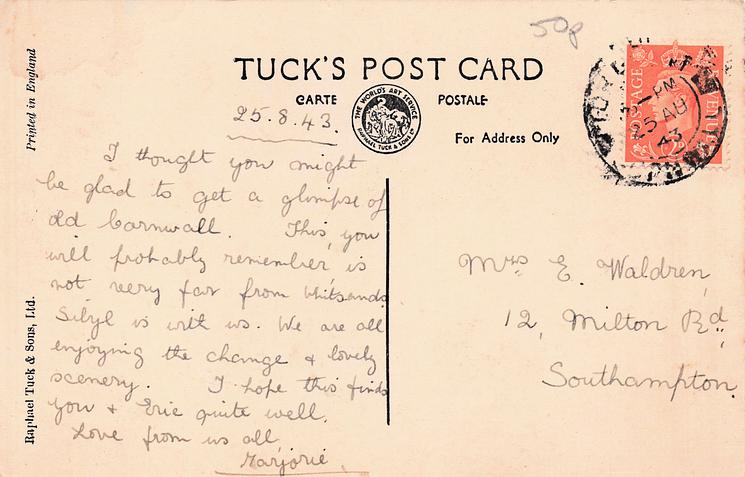 50p
TUCK'S POST CARD
CARTE POSTALE
THE WORLD'S ART SERVICE
RAPHAEL TUCK & SONS LTD
For Address Only
Printed in England
Raphael Tuck & Sons, Ltd.
25.8.43.
I thought you might
be glad to get a glimpse of
old Cornwall. This, you
will probably remember is
not very far from Whitsands
Sibyl is with us. We are all
enjoying the change & lovely
scenery. I hope this finds
you & Eric quite well.
Love from us all
Marjorie.
Mrs E. Waldren,
12, Milton Rd,
Southampton.
POSTAGE
REVENUE
PM
25 AU
43